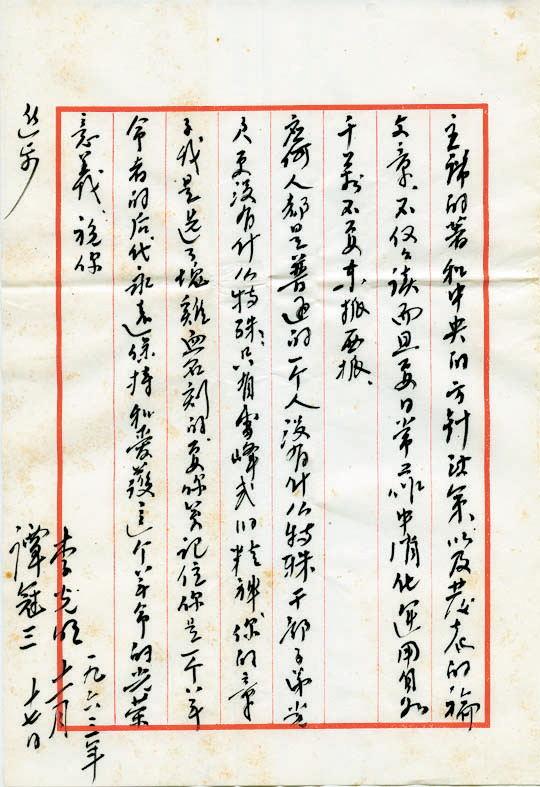 主席的著和中央的方针政策以及发表的
文章不仅公读而且要日常工作中消化运用自如
千万不要东抓西抓、
任何人都是普通的一个人没有什么特殊干部子弟党
员更没有什么特殊、只有雷峰式的精神你的章
子我是选了块鸡血石刻的、要你们记住你是一个革
命者的后代永远保持和爱护这个革命的光荣
意义、祝你
进步
李光明
谭冠三
一九六三年
十一月
十七日